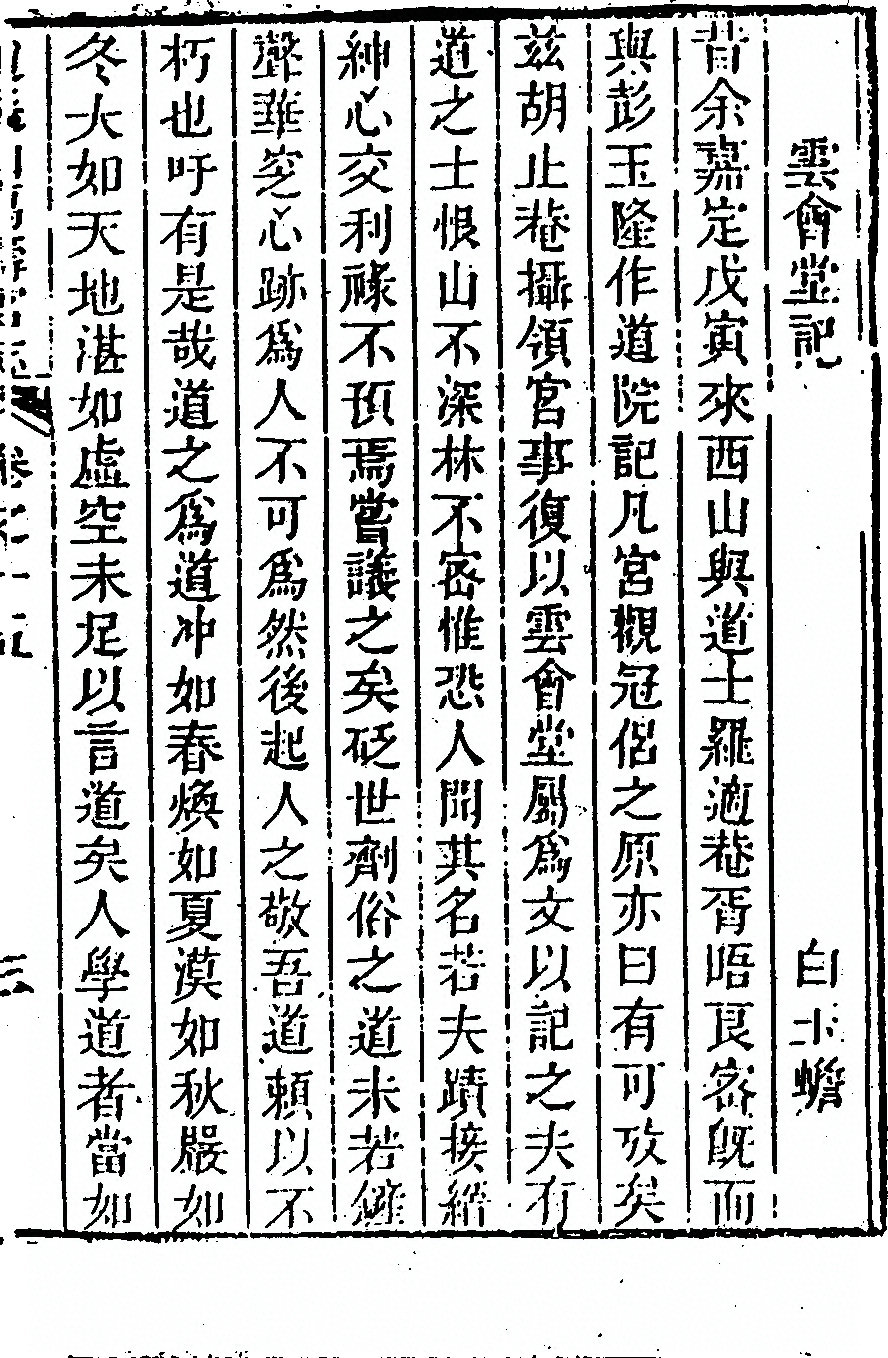 雲會堂記 白玉蟾
昔余嘉定戊寅來西山與道士羅適菴胥唔良密旣而
與彭玉隆作道院記凡宮觀冠侶之原亦曰有可攷矣
兹胡止菴攝領宮事復以雲會堂屬爲文以記之夫有
道之士恨山不深林不密惟恐人聞其名若夫蹟接縉
紳心交利祿不預焉嘗議之矣砭世劑俗之道未若
聲華空心跡爲人不可爲然後起人之敬吾道頼以不
朽也吁有是哉道之爲道冲如春煥如夏漠如秋嚴如
冬大如天地湛如虛空未足以言道矣人學道者當如